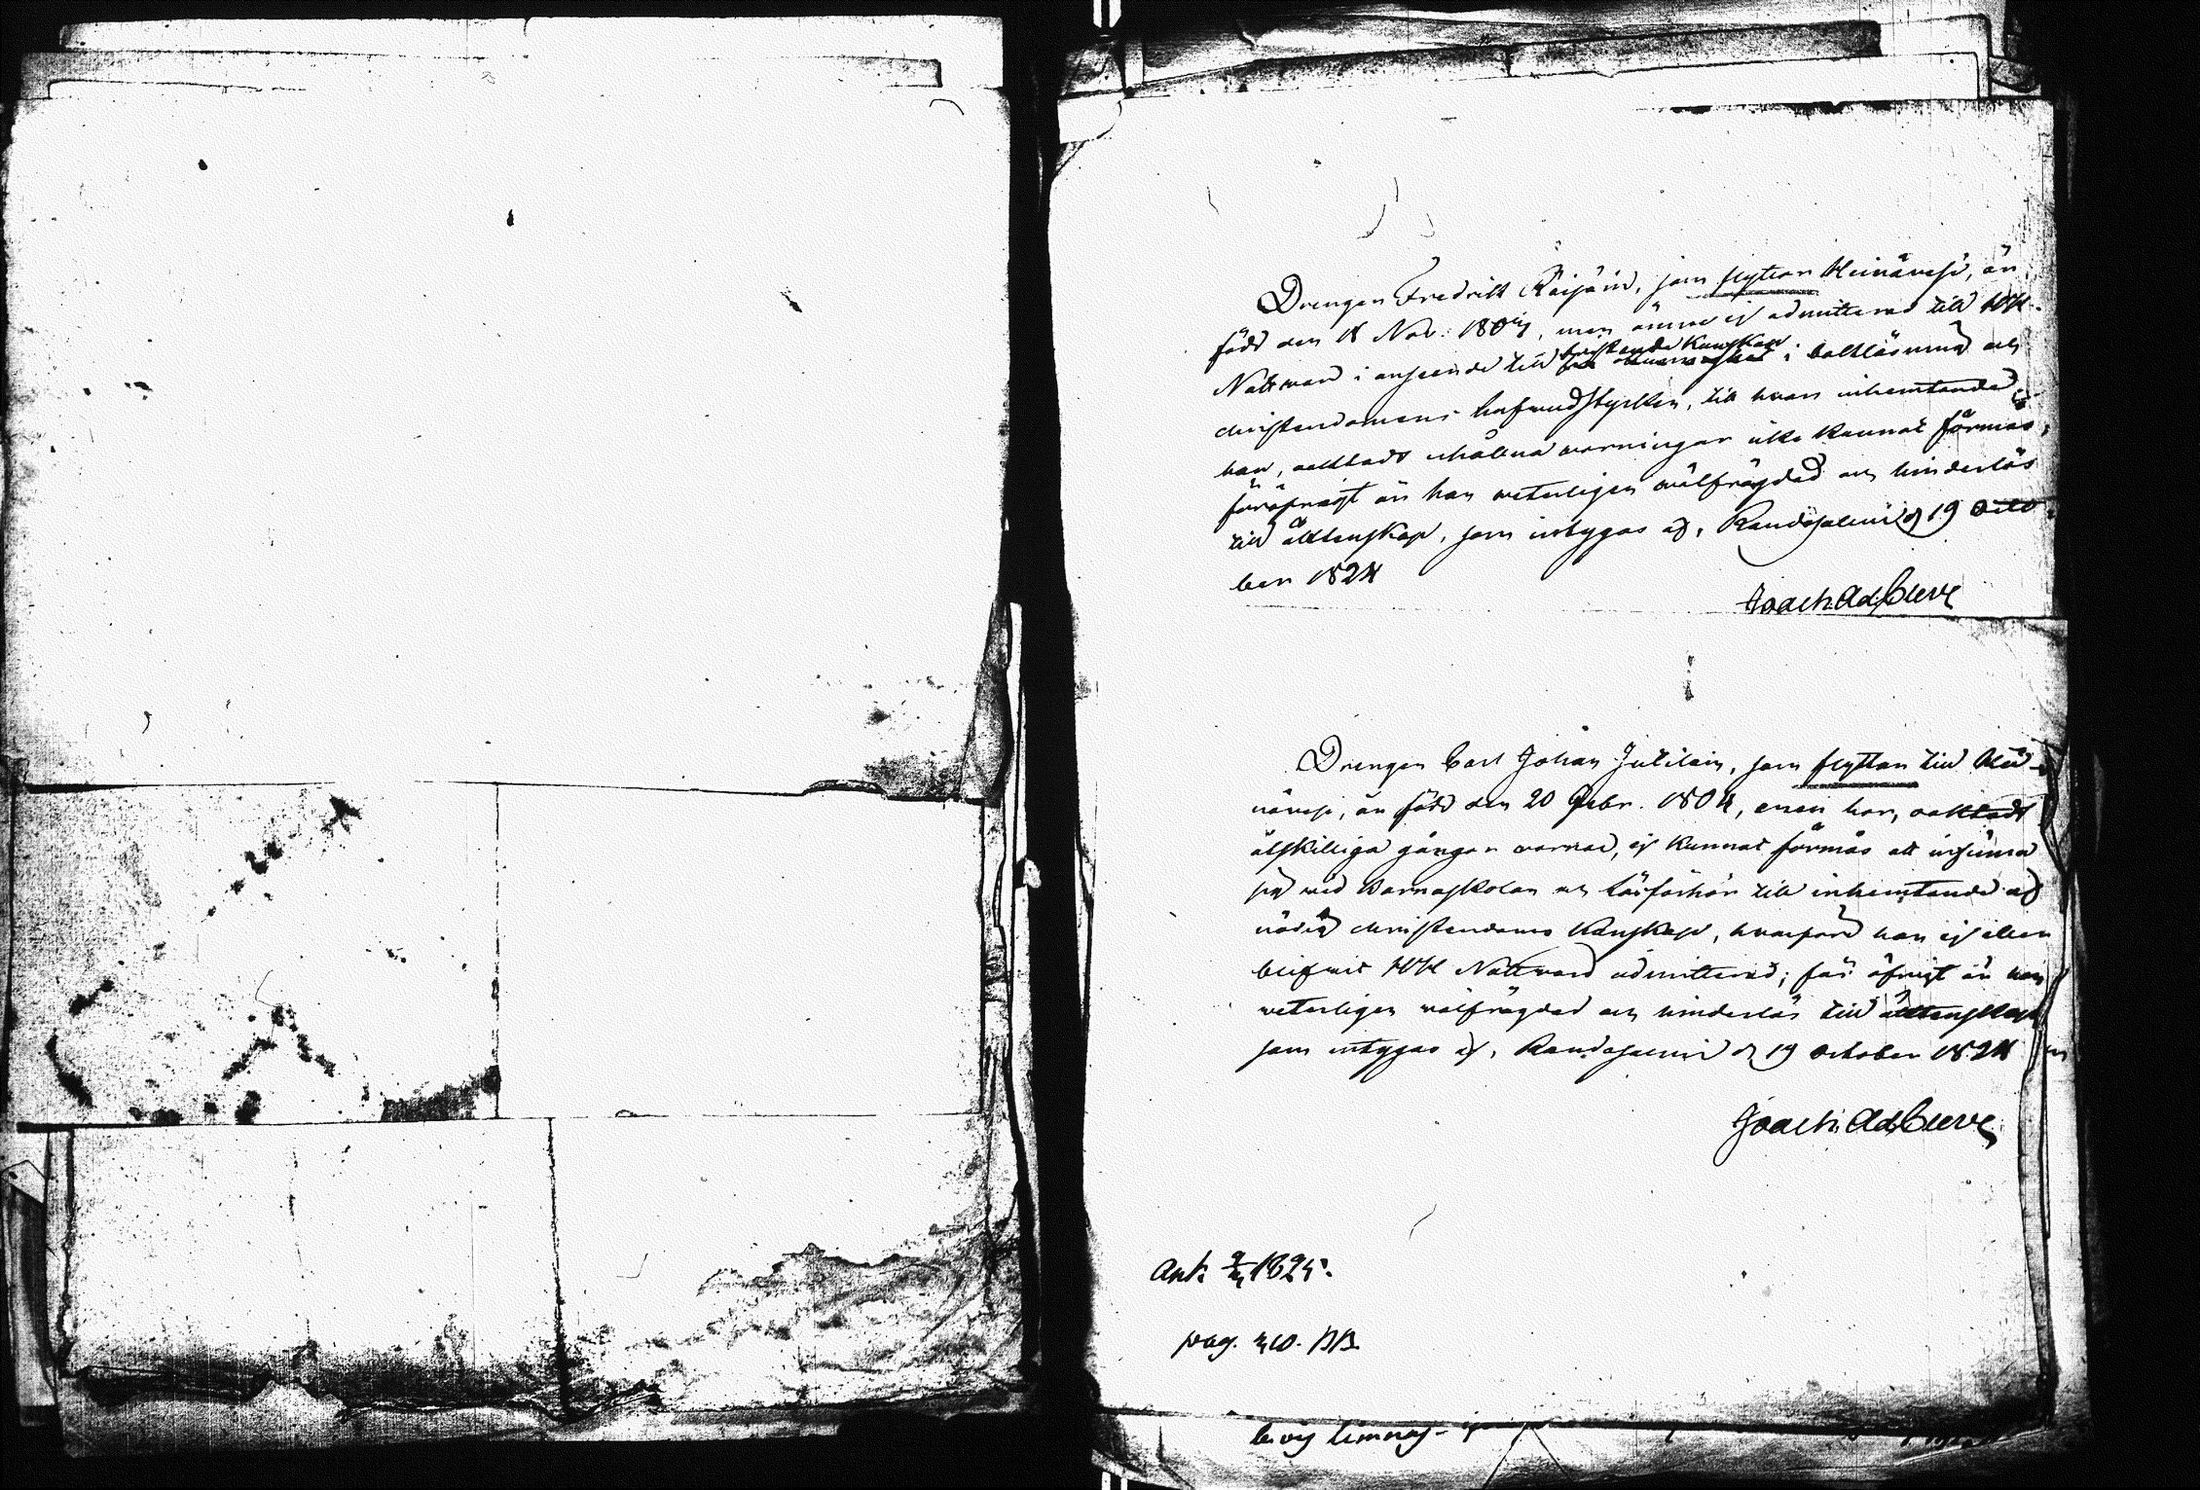 Drengen Fredrik Räisäin, som flyttar Heinäwesi, är
född den 18 Nov. 1804, men ännu ej admitterad till HH.
Nattward i anseende till bristande Kunskap i bokläsning och
christendomens hufwudstycken, till hwars inhemtande
han, oaktadt mångna warningar icke kunnat förmås,
föröfrigt är han weterligen wälfrägdad och hinderlös
till ächtenskap, som intygas af, Randasalmi d 19 Octo
ber 1824
Joach. Ad. Cleve
Drengen Carl Johan Jutilain, som flyttar till Hei-
näwesi, är född den 20 Febr. 1804, men har, oaktadt
åtskilliga gångor warnad, ej kunnat förmås att infinna
sig wid Barnaskolan och Läsförhör till inhemtande af
nödig christendoms Kunskap, hwarföre han ej eller
blifwit HH Nattward admitterad; för öfrigt är han
weterligen wälfrägdad och hinderlös till ächtenskap
som intygas af, Randasalmi d 19 October 1824
Joach. Ad. Cleve
Ank. 1825.
pag.